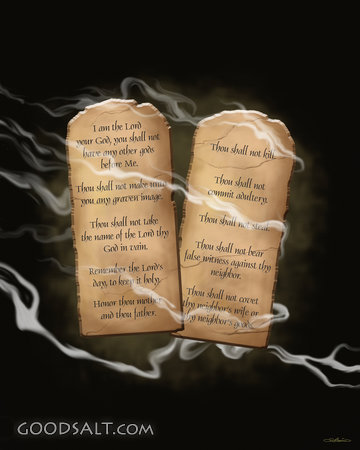 I am the Lord
your God, you shall not
have any other gods
before Me.
Thou shall not make unto
you any graven image.
Thou shall not take
the name of the Lord thy
God in vain.
Remember the Lord's
day, to keep it holy.
Honor thou mother
and thou father.
Thou shall not kill.
Thou shall not
commit adultery.
Thou shall not steal.
Thou shall not bear
false witness against thy
neighbor.
Thou shall not covet
thy neighbor's wife or
thy neighbor's goods.
GOODSALT.COM